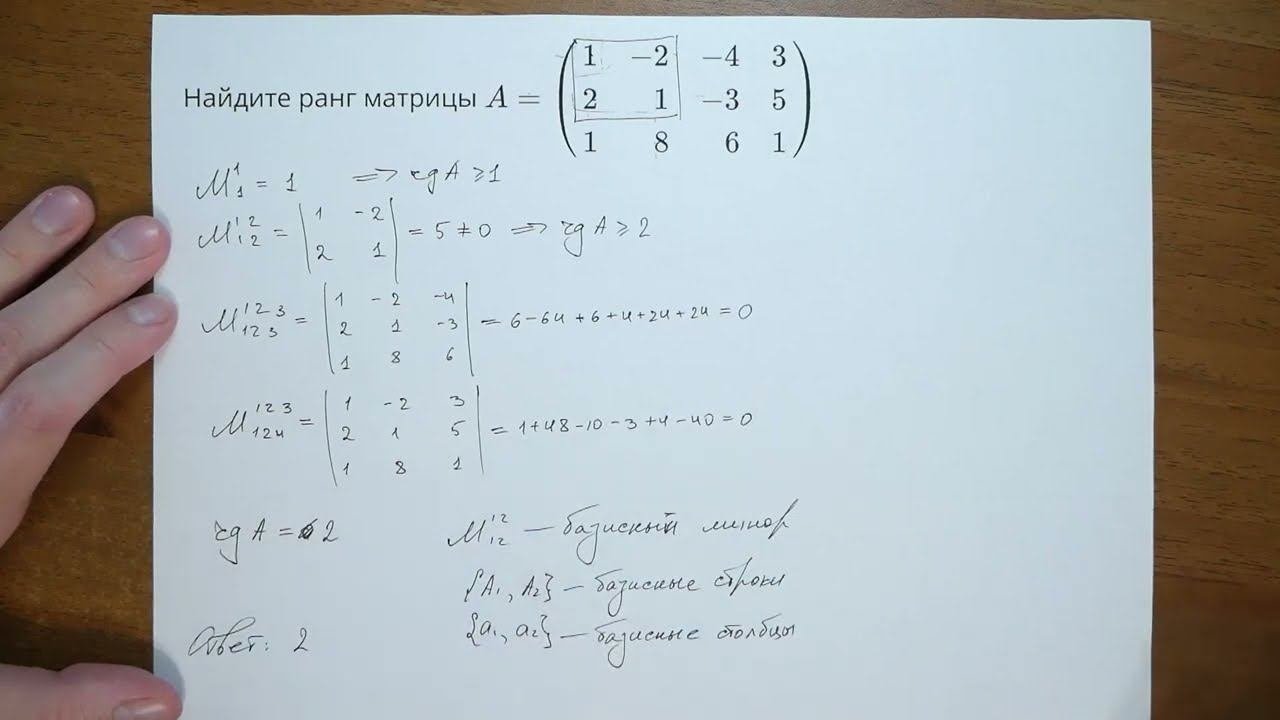 Найдите ранг матрицы A = ( 1 −2 −4 3
2 1 −3 5
1 8 6 1 )
M₁¹ = 1 ⟹ rg A ⩾ 1
M₁₂¹² = | 1 -2
2 1 | = 5 ≠ 0 ⟹ rg A ⩾ 2
M₁₂₃¹²³ = | 1 -2 -4
2 1 -3
1 8 6 | = 6-64+6+4+24+24=0
M₁₂₄¹²³ = | 1 -2 3
2 1 5
1 8 1 | = 1+48-10-3+4-40=0
rg A = 2
M₁₂¹² — базисный минор
{A₁, A₂} — базисные строки
{a₁, a₂} — базисные столбцы
Ответ: 2